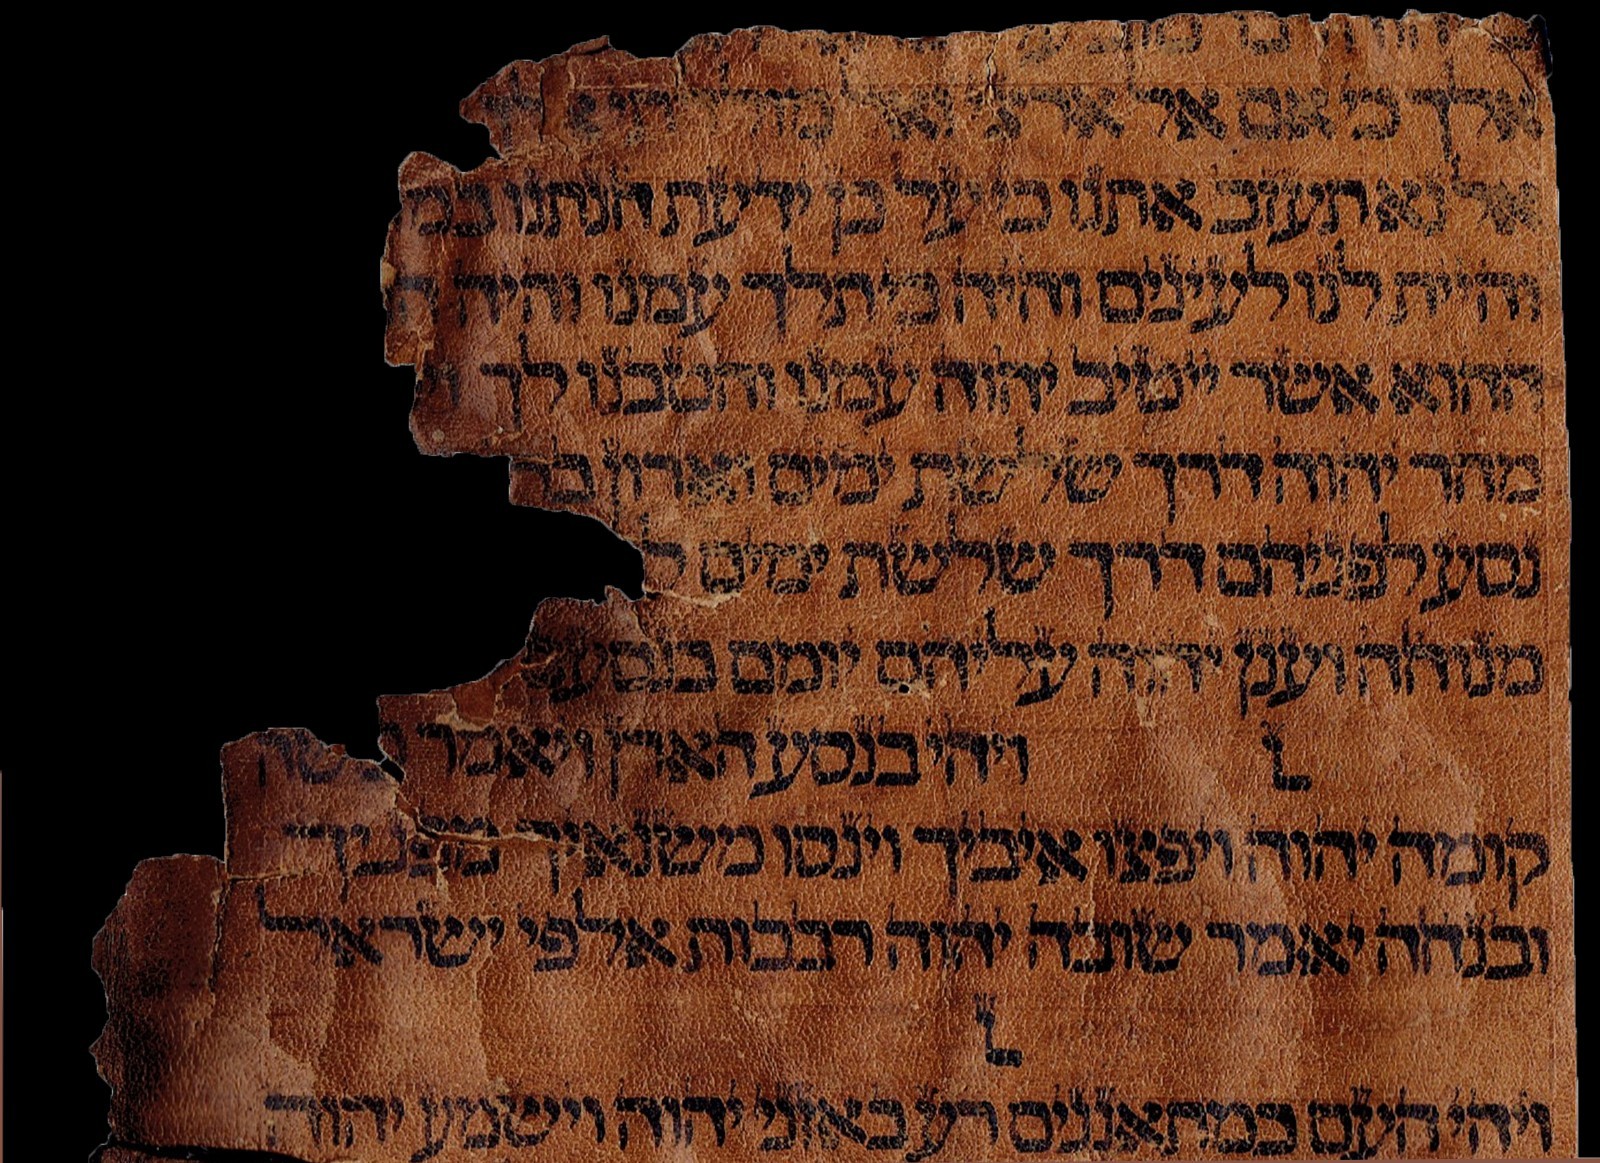 אלך כי אם אל ארצי ואל מולדתי
אל נא תעזב אתנו כי על כן ידעת חנתנו במ
והיית לנו לעינים והיה כי תלך עמנו והיה ה
ההוא אשר ייטיב יהוה עמנו והטבנו לך
מהר יהוה דרך שלשת ימים וארון בר
נסע לפניהם דרך שלשת ימים ל
מנוחה וענן יהוה עליהם יומם בנסעם
׆ ויהי בנסע הארן ויאמר משה
קומה יהוה ויפצו איביך וינסו משנאיך מפניך
ובנחה יאמר שובה יהוה רבבות אלפי ישראל
׆
ויהי העם כמתאננים רע באזני יהוה וישמע יהוה